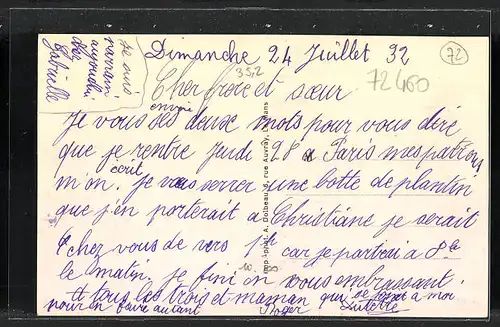 Dimanche 24 Juillet 32
72
352
72460
Cher frère et sœur
envoi
Je vous ses deux mots pour vous dire
que je rentre Jeudi 28 a Paris mes patrons
m'on écrit je vous serrer une botte de plantin
que j'en porterait a Christiane je serait
chez vous de vers 1h car je partirai a 8h
le matin. je fini en vous embrassant
tous les trois et maman que
pour en faire autant Roger
a moi
Gabrielle
Imp.-phot. A. Dolbeau, rue Auvray,